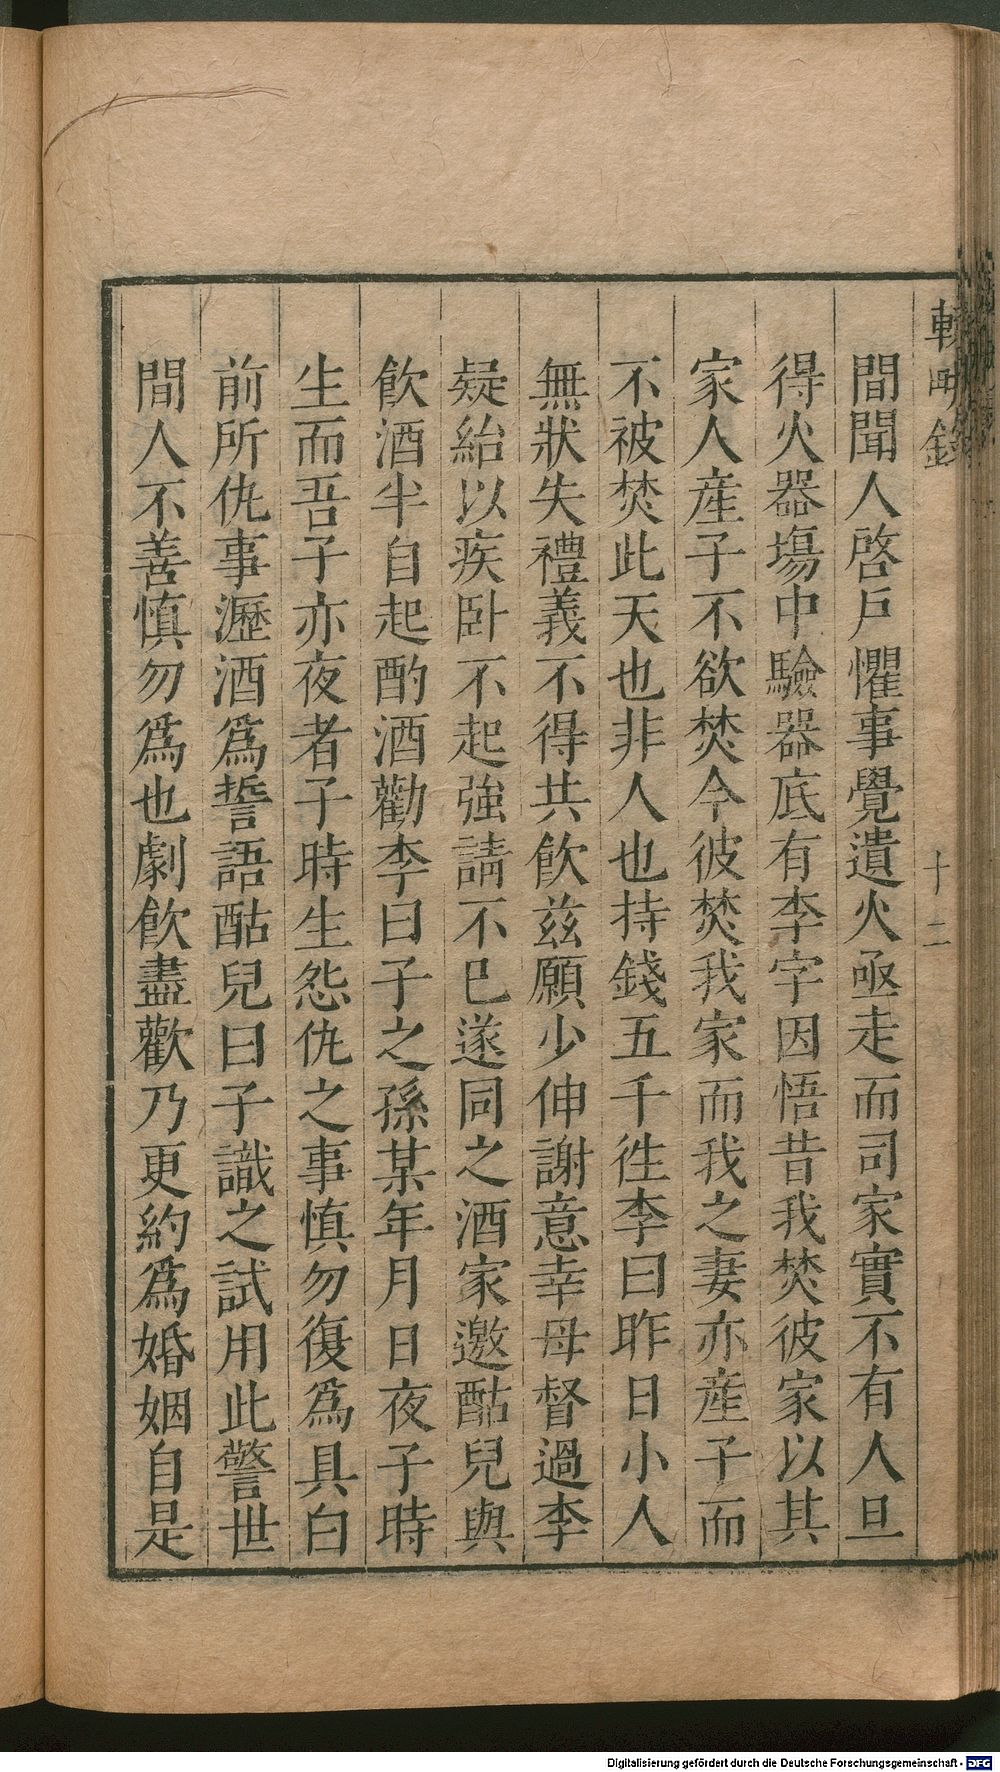 輟畊錄
十二
間聞人啓戶懼事覺遺火亟走而司家實不有人旦
得火器塲中驗器底有李字因悟昔我焚彼家以其
家人產子不欲焚今彼焚我家而我之妻亦產子而
不被焚此天也非人也持錢五千徃李曰昨日小人
無狀失禮義不得共飲兹願少伸謝意幸毋督過李
疑紿以疾卧不起強請不已遂同之酒家邀酤兒與
飲酒半自起酌酒勸李曰子之孫某年月日夜子時
生而吾子亦夜者子時生怨仇之事慎勿復爲具白
前所仇事瀝酒爲誓語酤兒曰子識之試用此警世
間人不善慎勿爲也劇飲盡歡乃更約爲婚姻自是
Digitalisierung gefördert durch die Deutsche Forschungsgemeinschaft - DFG